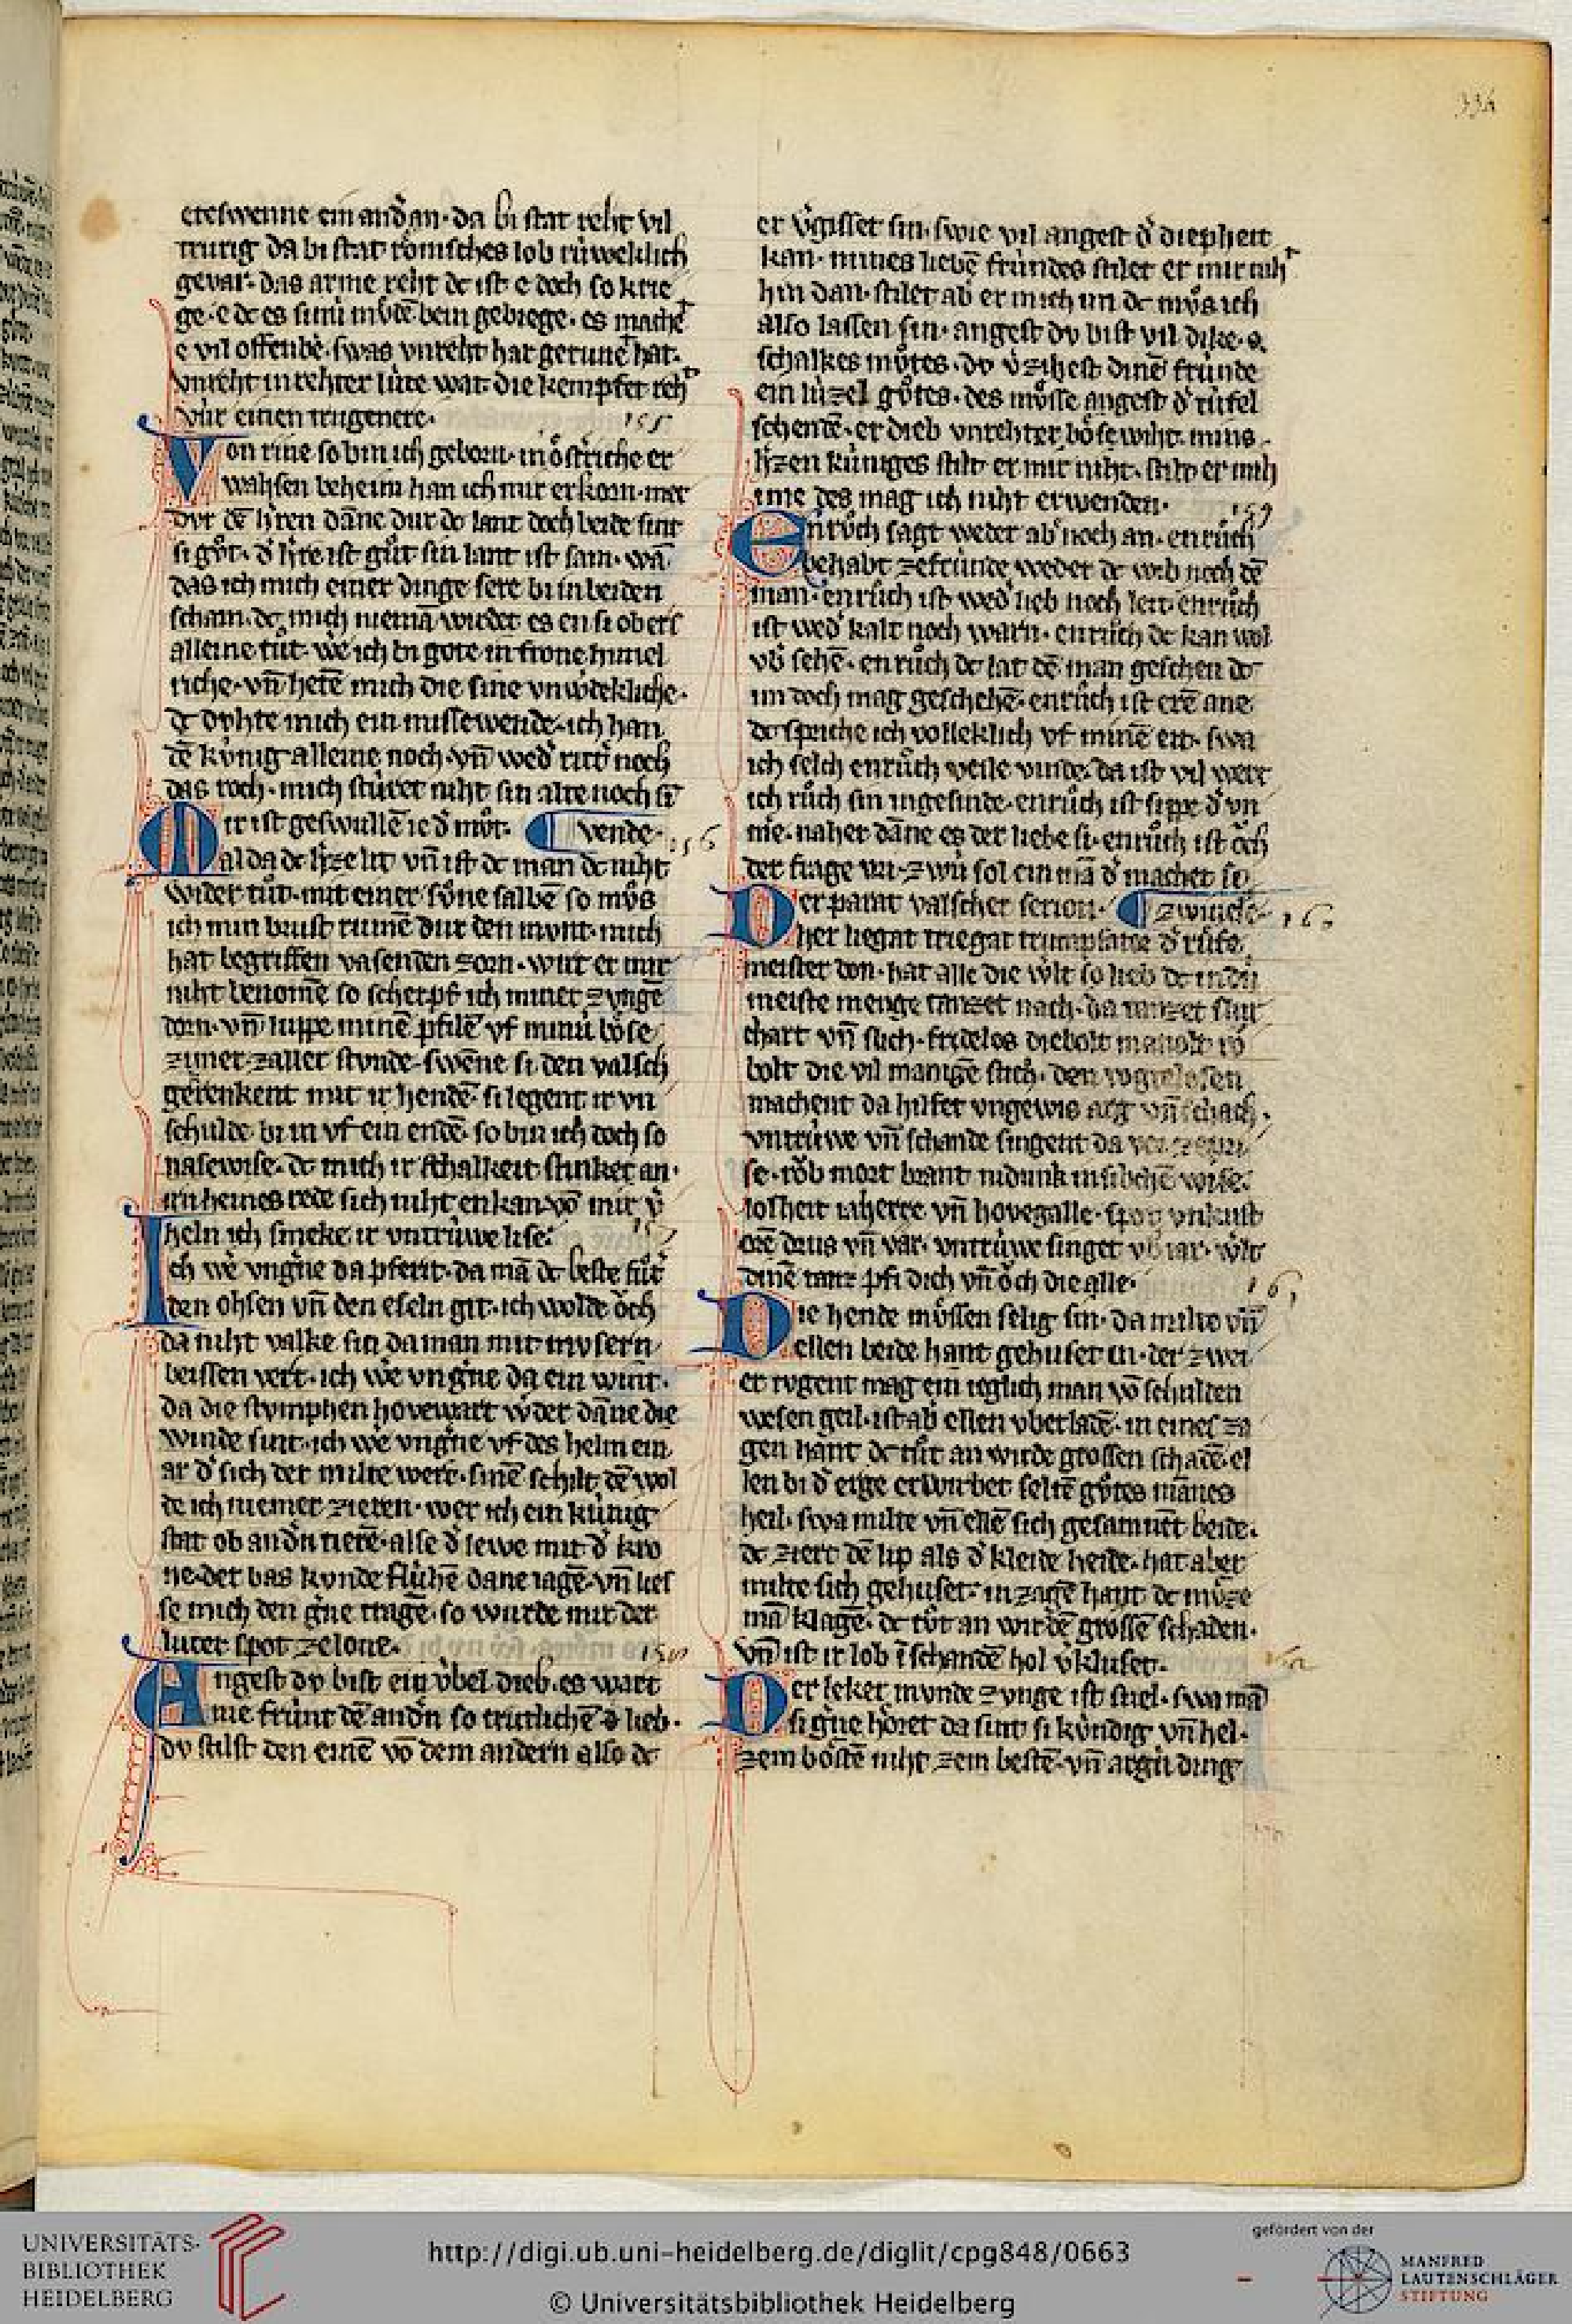 334
eteſwenne ein andˀ an· da bi ſtat reht vil
trurig da bi ſtat roͤmſches lob ruͤweklich
gevar· das arme reht dc iſt e doch ſo krie
ge· e dc es ſinuͥ mvͤdē bein gebiege· es
e vil offenbē· ſwas vnreht hat gerunē hat·
vnreht in rehter lute wat· die kempfet reht
vuͥr einen trugenere·
155
Von rine ſo bin ich geborn· in oͤſtriche er
wahſen beheim han ich mir erkorn· mer
dvr dē hˀren dāne dur dc lant doch beide ſint
ſi gv̊t· dˀ hˀre iſt gv̊t ſin lant iſt ſam· wā
das ich mich einer dinge ſere bi in beiden
ſcham· dc mich niemā wirdet es en ſi obers
alleine tv̊t· wē ich bi gote in frone himel
riche· vn̄ hetē mich die ſine vnwˀdekliche·
dc dvhte mich ein miſſewende· ich han
dē kv́nig alleine noch· vn̄ wedˀ ritter noch
das roch· mich ſtuͥret niht ſin alte noch ſī
Mir iſt geſwullē ie dˀ mv̊t· vende·
156
al da dc hˀze lit vn̄ iſt dc man dc niht
wider tv̊t· mit einer ſv̊ne ſalbē ſo mvͦs
ich min bruſt rumē dur den mvnt· mich
hat begriffen vaſenden zorn· wirt er mir
niht benomē ſo ſcherpf ich miner zvnge
dorn· vn̄ luppe minē pfilē vf minuͥ boͤſe
zimer· zaller ſtvnde· ſwēne ſi den valſch
geͮrenkent mit ir hendē· ſi legent ir vn
ſchulde bi in vf ein endē· ſo bin ich doch ſo
naſewiſe· dc mich ir ſchalkeit ſtinket an·
in heines rede ſich niht enkan vō mir vˀ
heln ich ſmeke ir vntruͥwe liſe·
157
Ich wē vngˀne da pferit· da mā dc beſte fuͦt
den ohſen vn̄ den eſeln git· ich wolde oͮch
da niht valke ſin da man mit mvſern
beiſſen vert· ich wē vngˀne da ein wint·
da die ſtvmphen hovewart wˀder dāne die
winde ſint· ich wē vngˀne vf des helm ein
ar dˀ ſich der milte were· ſinē ſchilt dē wol
de ich niemer zieren· wer ich ein kuͥnig
ſtat ob andˀn tierē· alſe dˀ lewe mit dˀ kro
ne· der bas kvnde fluhē dane iagē· vn̄ lieſ
ſe mich den gˀne tragē· ſo wurde mir der
luter ſpot zelone·
158
Angeſt dv biſt ein vͥbel dieb· es wart
nie fruͥnt dē andˀn ſo trutlichē lieb·
dv ſtilſt den einē vō dem andern alſo dc
er vˀgiſſet ſin· ſwie vil angeſt dˀ diepheit
kan· mines liebē fruͥndes ſtilet er mir niht
hin dan· ſtilet abˀ er mich im dc mv̊s ich
alſo laſſen ſin· angeſt dv biſt vil dike
ſchalkes mv̊tes· dv vˀziheſt dinē fruͥnde
ein luͥzel gv̊tes· des mvͤſſe angeſt dˀ tuͥfel
ſchendē· er dieb vnrehter boͤſewiht· mins
hˀzen kuͥniges ſtilt er mir niht· ſtilt er mih
ime des mag ich niht erwenden·
159
Enrv̊ch ſagt weder abˀ noch an· enrv̊ch
behabt zefruͥnde weder dc wib noch dē
man· enrv̊ch iſt wedˀ lieb noch leit· enrv̊ch
iſt wedˀ kalt noch warn· enrv̊ch dc kan wol
vbˀ ſehē· enrv̊ch dc lat dē man geſchen dc
im doch mag geſchehē· enrv̊ch iſt erē ane
dc ſpriche ich volleklich vf minē eit· ſwa
ich ſelch enrv̊ch veile vinde· da iſt vil wert
ich rv̊ch ſin ingeſinde· enrv̊ch iſt ſippe dˀ vn
nie· naher dāne es der liebe ſi· enrv̊ch iſt oͮch
der frage vri· zwuͥ ſol ein mā dˀ machet ſo
Der parat valſcher ſerion· zwinele·
160
her liegat triegat trumpfator dˀ ruͤfe
meiſter don· hat alle die wˀlt ſo lieb dc in duͥ
meiſte menge tanzet nach· da tanzet ſlur
chart vn̄ ſlich· fridelos diebolt manolt ro
bolt die vil manigē ſtich· den
machent da hilfet vngewis arg vn̄ ſchach·
vntruͥwe vn̄ ſchande ſingent da vor
ſe· roͮb mort brant nidunk in ſūchē wiſe·
loſheit iaherre vn̄ hovegalle· ſpot vnkuſt
vn̄ var· vntruͥwe ſinget vbˀ iar· wˀlt
dinē tanz pfi dich vn̄ oͮch die alle·
161
Die hende mvͤſſen ſelig ſin· da milte vn̄
ellen beide hant gehuſet in· der zwei
er tvgent mag ein ieglich man vō ſchulden
weſen geil· iſt abˀ ellen vberladē· in eines za
gen hant dc tv̊t an wirde groſſen ſchadē· el
len bi dˀ erge erwirbet ſeltē gv̊tes māneo
heil· ſwa milte vn̄ ellē ſich geſamnet beide·
dc ziert dē lip als dˀ kleide heide· hat aber
milte ſich gehuſet· in zagē hant dc mv̊ze
mā klagē· dc tv̊t an wirdē groſſē ſchaden·
vn̄ iſt ir lob ī ſchandē hol vˀkluſet·
162
Der leker mvnde zvnge iſt ſnel· ſwa mā
ſi gˀne hoͤret da ſint ſi kv́ndig vn̄ hel·
zem boͤſtē niht zem beſtē· vn̄ arguͥ ding
UNIVERSITÄTS-
BIBLIOTHEK
HEIDELBERG
http://digi.ub.uni-heidelberg.de/diglit/cpg848/0663
© Universitätsbibliothek Heidelberg
gefördert von der
MANFRED
LAUTENSCHLÄGER
STIFTUNG